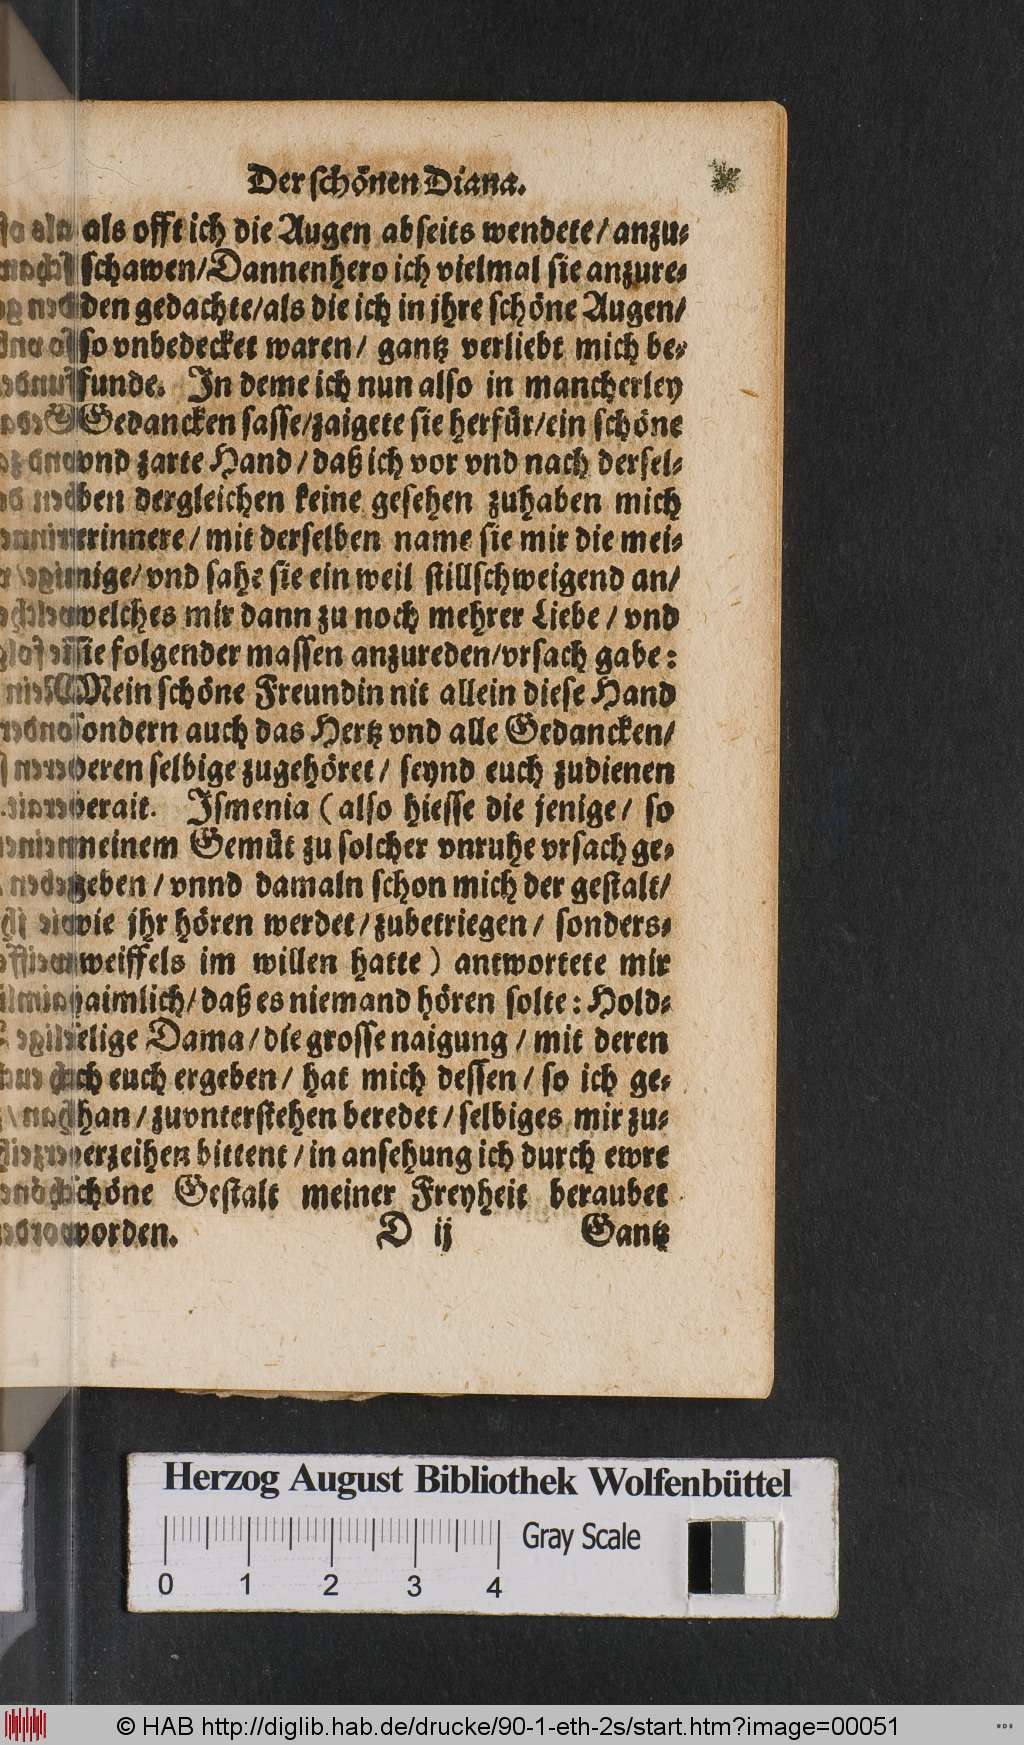 Der schönen Diana.
als offt ich die Augen abseits wendete/ anzu-
schawen/ Dannenhero ich vielmal sie anzure-
den gedachte/ als die ich in jhre schöne Augen/
so vnbedecket waren/ gantz verliebt mich be-
funde. In deme ich nun also in mancherley
Gedancken sasse/ zaigete sie herfür/ ein schöne
vnd zarte Hand/ daß ich vor vnd nach dersel-
ben dergleichen keine gesehen zuhaben mich
erinnere/ mit derselben name sie mir die mei-
nige/ vnd sahe sie ein weil stillschweigend an/
welches mir dann zu noch mehrer Liebe/ vnd
sie folgender massen anzureden/ vrsach gabe:
Mein schöne Freundin nit allein diese Hand
sondern auch das Hertz vnd alle Gedancken/
deren selbige zugehöret/ seynd euch zudienen
berait. Ismenia (also hiesse die jenige/ so
meinem Gemüt zu solcher vnruhe vrsach ge-
geben/ vnnd damaln schon mich der gestalt/
wie jhr hören werdet/ zubetriegen/ sonders-
zweiffels im willen hatte) antwortete mir
haimlich/ daß es niemand hören solte: Hold-
selige Dama/ die grosse naigung/ mit deren
ich euch ergeben/ hat mich dessen/ so ich ge-
than/ zuvnterstehen beredet/ selbiges mir zu-
verzeihen bittent/ in ansehung ich durch ewre
schöne Gestalt meiner Freyheit beraubet
worden. D ij Gantz
Herzog August Bibliothek Wolfenbüttel
Gray Scale
0 1 2 3 4
© HAB http://diglib.hab.de/drucke/90-1-eth-2s/start.htm?image=00051